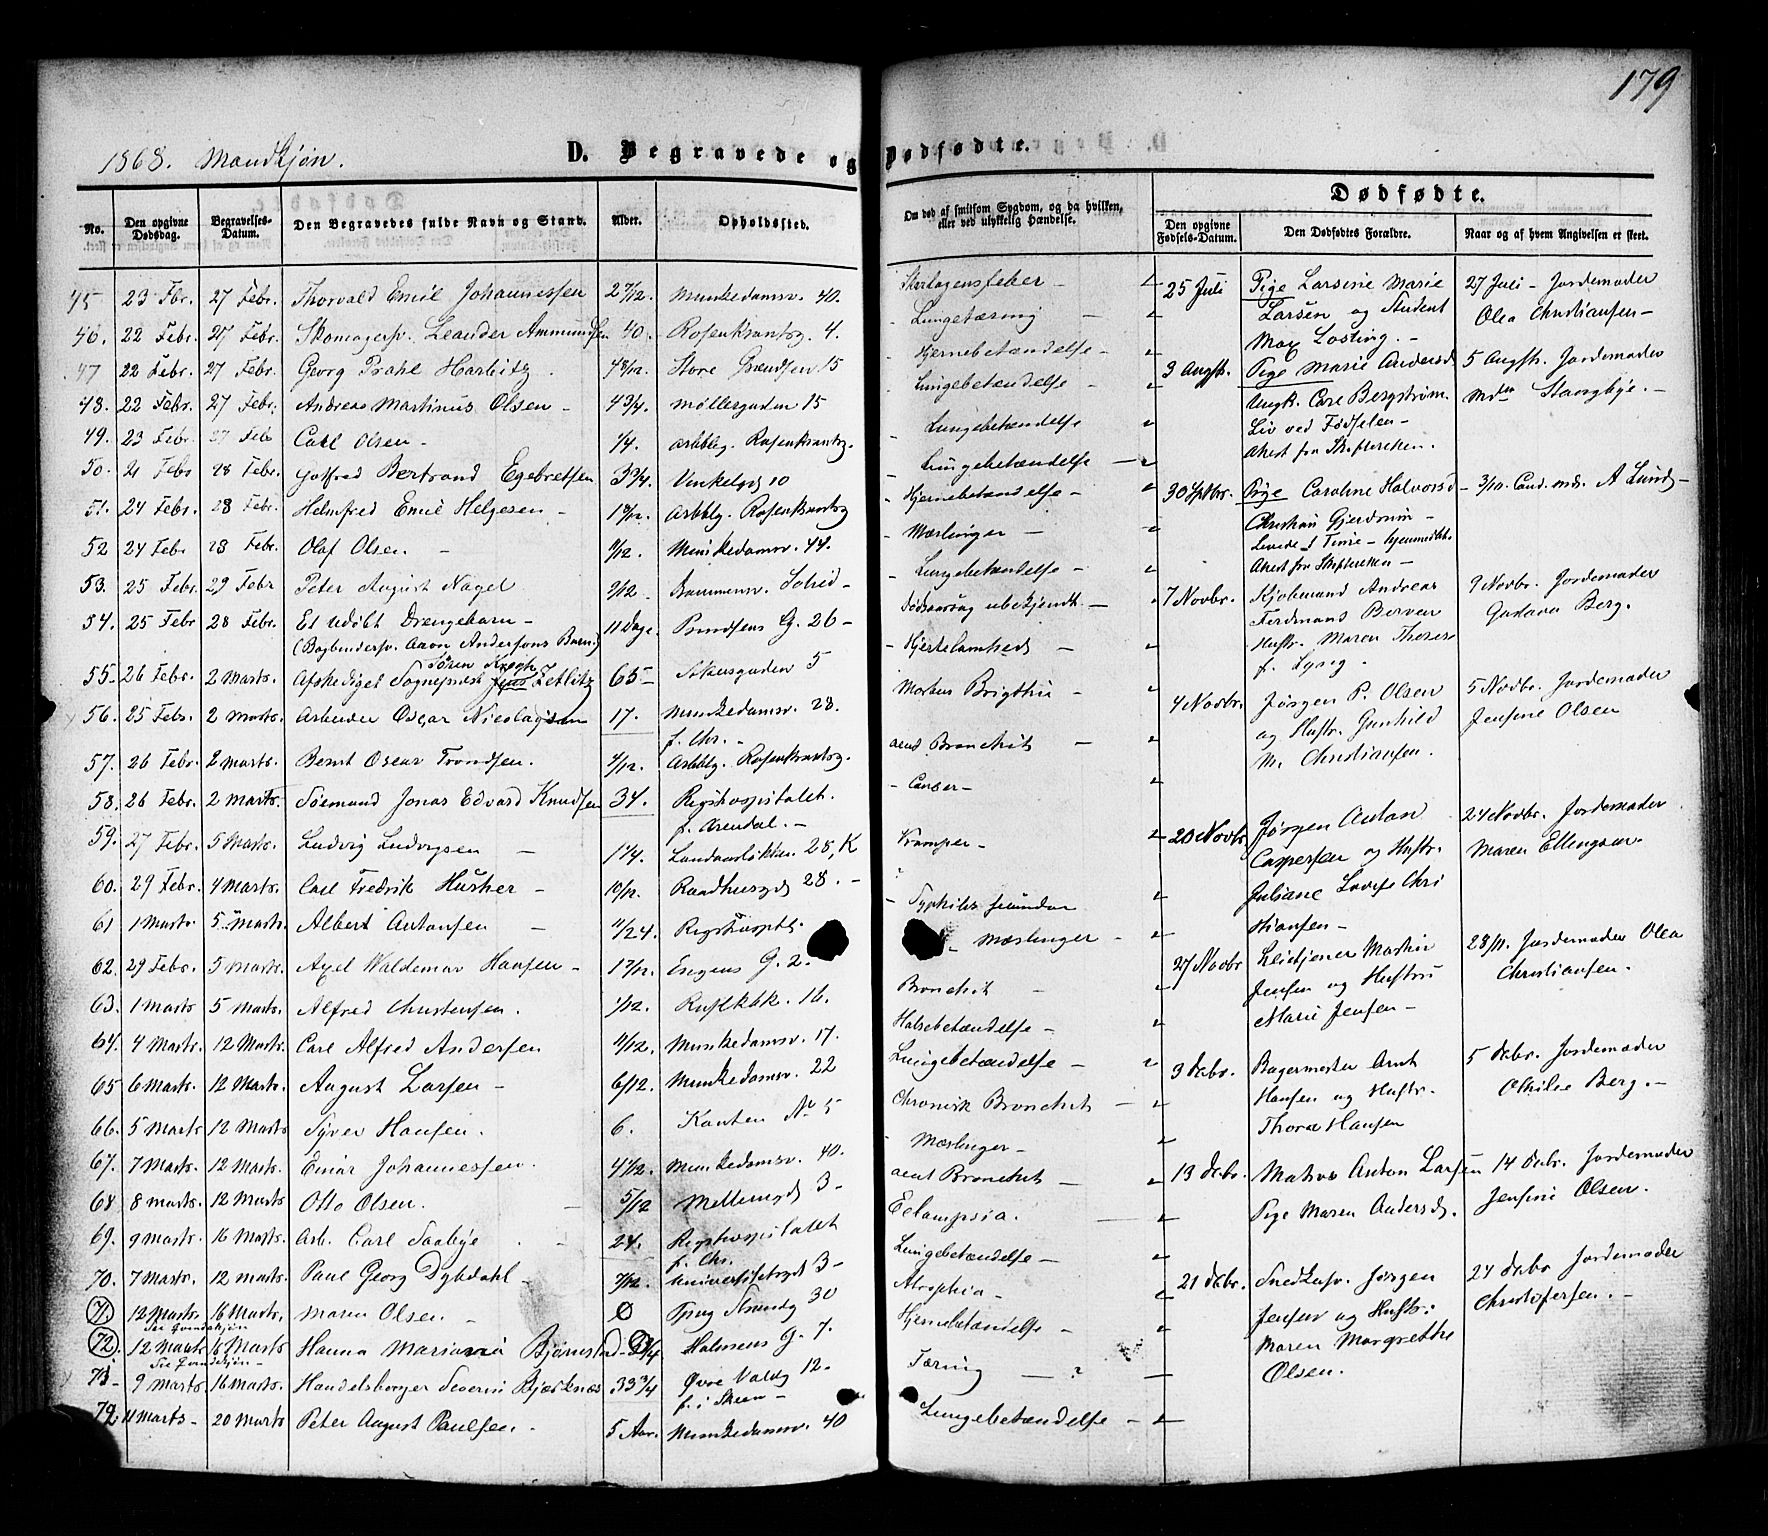 179
1868. Mandkjøn.
D. Begravede og Dødfødte.
No. | Den opgivne Dødsdag. | Begravelses-Datum. | Den Begravedes fulde Navn og Stand. | Alder. | Opholdssted. | Om død af smitsom Sygdom, og da hvilken, eller ved ulykkelig Hændelse.
45 | 23 Fbr. | 27 Febr. | Thorvald Emil Johannessen | 2 7/12. | Munkedamsv. 40. | Skarlagensfeber -
46. | 22 Febr. | 27 Febr. | Skomagersv. Leander Ammundsen | 40. | Rosenkrantzg. 4. | Lungetæring -
47 | 22 Febr. | 27 Febr. | Georg Prahl Harbitz. | 4 8/12. | Store Grændsen 15 | Hjernebetændelse -
48. | 22 Febr. | 27 Febr. | Andreas Martinus Olsen - | 4 3/4. | Møllergaden 15 | Lungebetændelse -
49. | 23 Febr. | 27 Feb | Carl Olsen - | 1/4. | Arbblg. Rosenkrantzg. | Lungebetændelse
50. | 21 Feb | 28 Febr. | Gotfred Bertrand Egebretsen | 3 3/4. | Vinkelgd 10 | Lungebetændelse -
51. | 24 Febr. | 28 Febr. | Helmfred Emil Helgesen - | Arbblg. Rosenkrantzg | Hjernebetændelse -
52 | 24 Febr | 28 Febr. | Olaf Olsen - | Munkedamsv. 44. | Mæslinger -
53. | 25 Febr | 29 Febr | Peter August Nagel | 9/12. | Bommensv. | Lungebetændelse -
54. | 25 Febr | 28 Febr. | Et udøbt Drengebarn - | 11 Dage | Bundsens G. 26 - | Dødsaarsag ubekjendt. -
(Bogbindersv. Aron Andersons Barn)
55- | 26 Febr. | 2 Marts. | Afskediget Sogneprest Jens Søren Krogh Zetlitz | 65- | Akersgaden 5 | Hjertelamhed -
56. | 25 Febr. | 2 Marts. | Arbeider Oscar Nicolaysen | 17. | Munkedamsv. 28. f. Chr. - | Morbus Brigthii -
57. | 26 Febr. | 2 Marts. | Bernt Oscar Trondsen. | 4/12. | Arbblg. Rosenkrantzg. | acut Bronchit -
58. | 26 Febr. | 2 Marts | Sømand Jonas Edvard Knudsen | 34. | Rigshospitalet. f. Arendal. - | Cancer -
59. | 27 Febr. | 5 Marts. | Ludvig Ludvigsen - | 1 1/4. | 28, K | Kramper -
60. | 29 Febr. | 4 Marts. | Carl Fredrik Husher - | 10/12. | Raadhusgd 28. -
61 | 1 Marts | 5 Marts. | Albert Antonsen - | 11/24. | Rigshospitl. | Syphilis secundær
62. | 29 Febr. | 5 Marts. | Axel Waldemar Hansen - | 1 7/12. | Engens G. 2. | Mæslinger -
63. | 1 Marts | 5 Marts. | Alfred Christensen. | 1/12. | Rusløkbk. 16. | Bronchit -
64. | 4 Marts. | 12 Marts. | Carl Alfred Andersen | 11/12. | Munkedamsv. 17. | Halsebetændelse -
65 | 6 Marts. | 12 Marts. | August Larsen - | 6/12. | Munkedamsv. 22 | Lungebetændelse -
66. | 5 Marts | 12 Marts | Syver Hansen. | 6. | Kanten No 5 | Chronisk Bronchit -
67. | 7 Marts. | 12 Marts. | Einar Johannessen. | Munkedamsv. 40. | Mæslinger -
68 | 8 Marts. | 12 Marts | Otto Olsen. | 5/12 | Mellemgd 3- | acut Bronchit -
69. | 9 Marts. | 16 Marts. | Arb. Carl Saabye | 24. | Rigshospitalet f. Chr. | Eclampsia.
70. | 7 Marts. | 12 Marts. | Paul Georg Dybdahl - | 7/12. | Universitetsgd 3- | Lungebetændelse -
71. | 12 Marts. | 16 Marts. | Maren Olsen. | 0 | Tjuvg Strandg 30 | Atrophia -
See Qvindekjøn
72. | 12 Marts | 16 Marts | Hanna Bjørnstad | Holmens G. 7. | Hjernebetændelse -
See Qvindekjøn -
73- | 9 Marts | 16 Marts. | Handelsborger Severin Bjerknæs | 33 3/4 | Øvre Voldg 12. f. i Skien - | Tæring -
74. | 11 Marts - | 20 Marts | Peter August Paulsen. | 5 Aar. | Munkedamsv. 40 | Lungebetændelse -
Dødfødte.
Den opgivne Fødsels-Datum. | Den Dødfødtes Forældre. | Naar og af hvem Angivelsen er skeet.
25 Juli | Pige Larsine Marie | 27 Juli - Jordemoder
Larsen og Student | Olea Christiansen -
Max Losting. -
3 Augst. | Pige Marie Andersd | 5 Augst. Jordemoder
Ungk. Carl Bergstrøm.
Liv ved Fødselen -
Attest fra Skifteretten.
30 Sptbr. | Pige Caroline Halvorsd - | 3/10. Cand. med. A Lund -
Christian
Levede 1 Time -
Attest fra Skifteretten -
7 Novbr. | Kjøbmand Andreas | 9 Novbr. Jordemoder
Ferdinand | Gustava Berg.
Hustr. Maren Therese
f. Lysig.
4 Novbr. | Jørgen P. Olsen | 5 Novbr. Jordemoder
og Hustr. Gunhild | Jensine Olsen
M. Christiansen.
20 Novbr | Jørgen Anton | 24 Novbr. Jordemoder
Caspersen og Hustr. | Maren Ellingsen.
Juliane Lovise Chri
stiansen -
27 Novbr | Martin | 28/11. Jordemoder Olea
Jensen og Hustru | Christiansen.
Marie Jensen -
3 Decbr. | Bagermester Arnt | 5 Decbr. Jordemoder
Hansen og Hustr. | Othilie Berg. -
Thora Hansen
13 Decbr. | Matros Anton Larsen | 14 Decbr. Jordemoder
Pige Maren Andersd. | Jensine Olsen.
21 Decbr. | Snedkersv. Jørgen | 24 Decbr Jordemoder
Jensen og Hustr. | Christofersen. -
Maren Margrethe
Olsen.